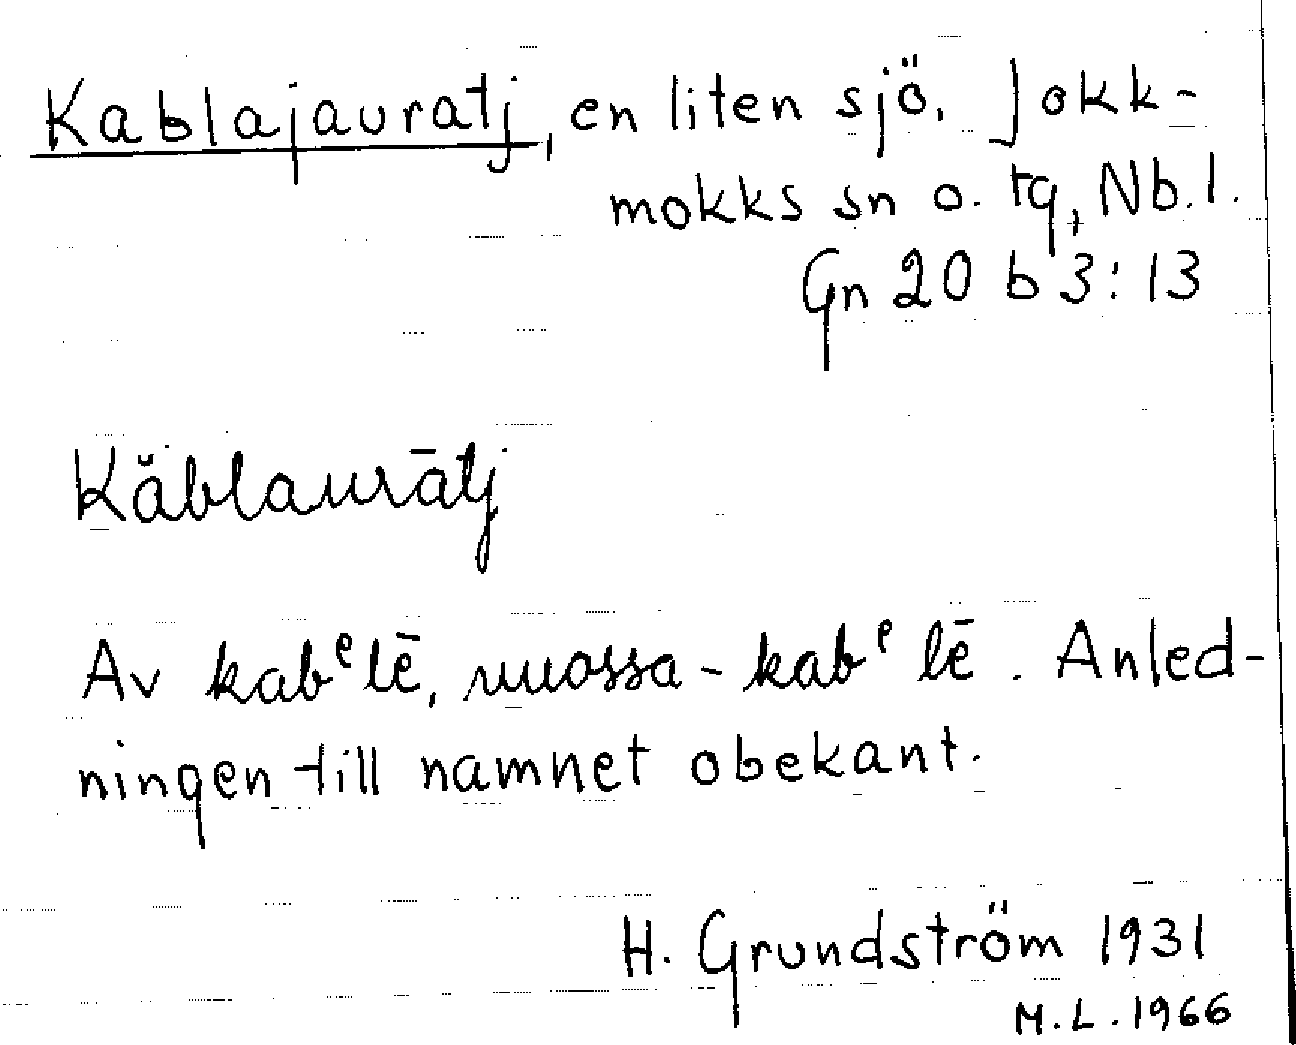 Kablajauratj, en liten sjö. Jokk-
mokks sn o. tg, Nb. l.
Gn 20 b 3:13
Kăblaurātj
Av kabᵉlē, muossa-kabᵉlē. Anled-
ningen till namnet obekant.
H. Grundström 1931
M.L. 1966